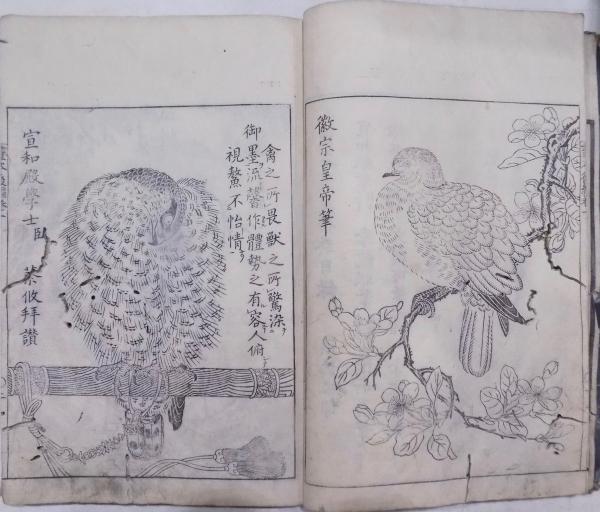 徽宗皇帝筆
禽之所畏獸之所驚染
御墨流馨作體勢之有容人俯
視不怡情
宣和殿學士臣 蔡攸拜讃